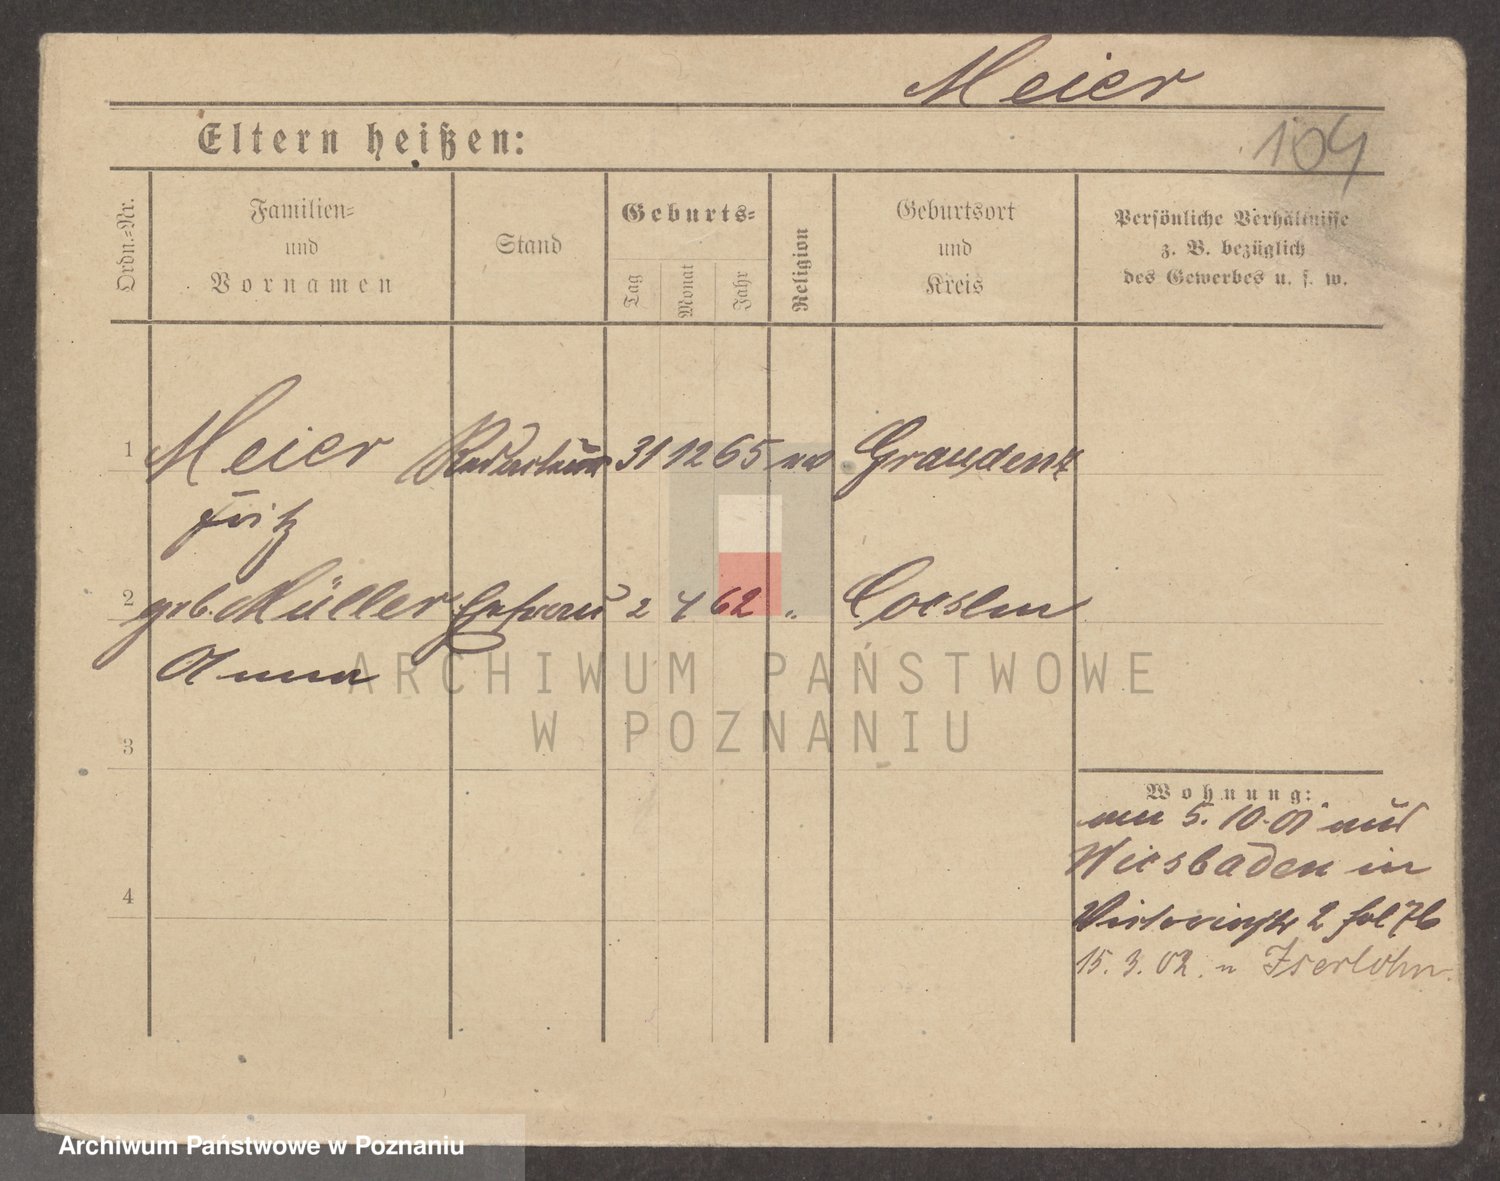 Meier
Eltern heißen:
104
Ordn.-Nr.
Familien-
und
Vornamen
Stand
Geburts-
Tag
Monat
Jahr
Religion
Geburtsort
und
Kreis
Persönliche Verhältnisse
z. B. bezüglich
des Gewerbes u. s. w.
1 Meier 31 12 65 ev Graudenz
Fritz
2 geb. Müller Ehefrau 2 4 62 " Coeslin
Anna
3
4
Wohnung:
am 5. 10. 01 aus
Wiesbaden in
Victoriastr 2 fol 76
15. 3. 02. n Iserlohn.
ARCHIWUM PAŃSTWOWE
W POZNANIU
Archiwum Państwowe w Poznaniu